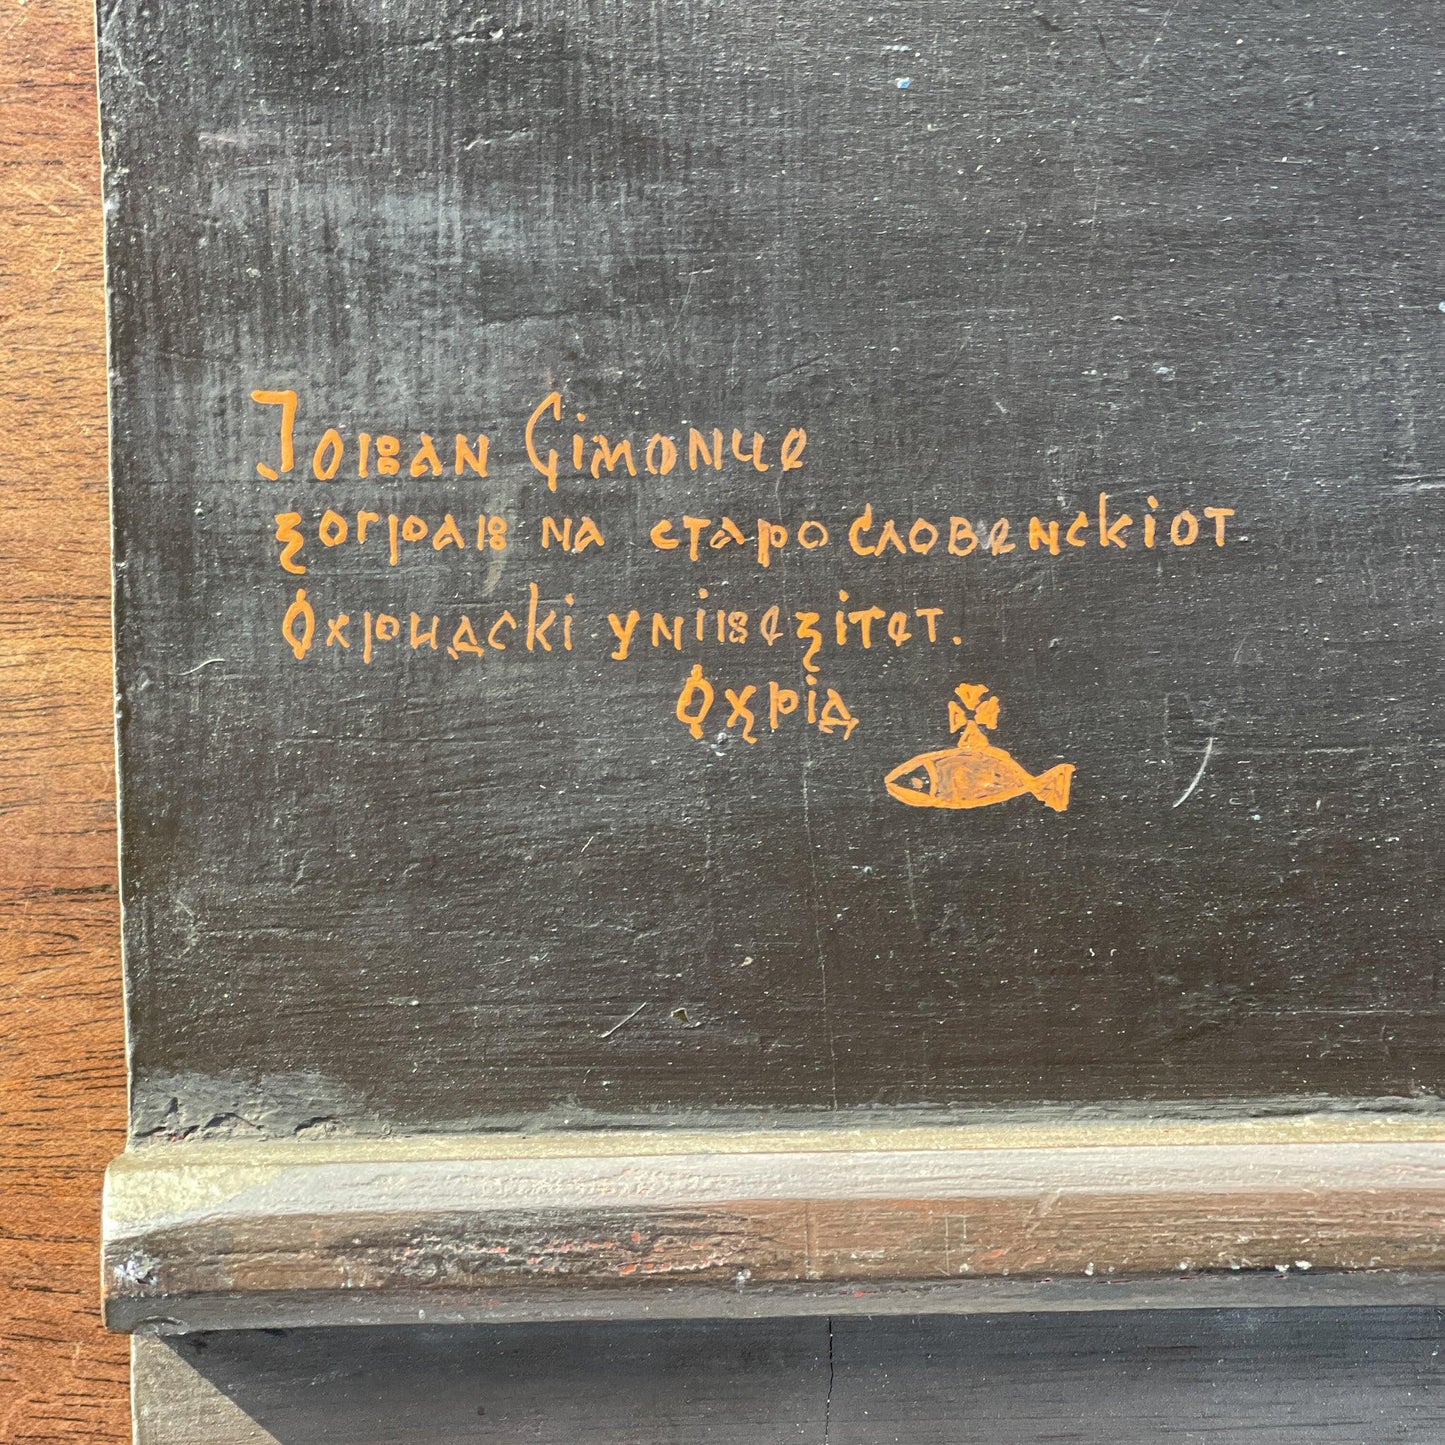 Јован Сімонче
зограв на старословенскіот
Охридскі унівезітет.
Охрід